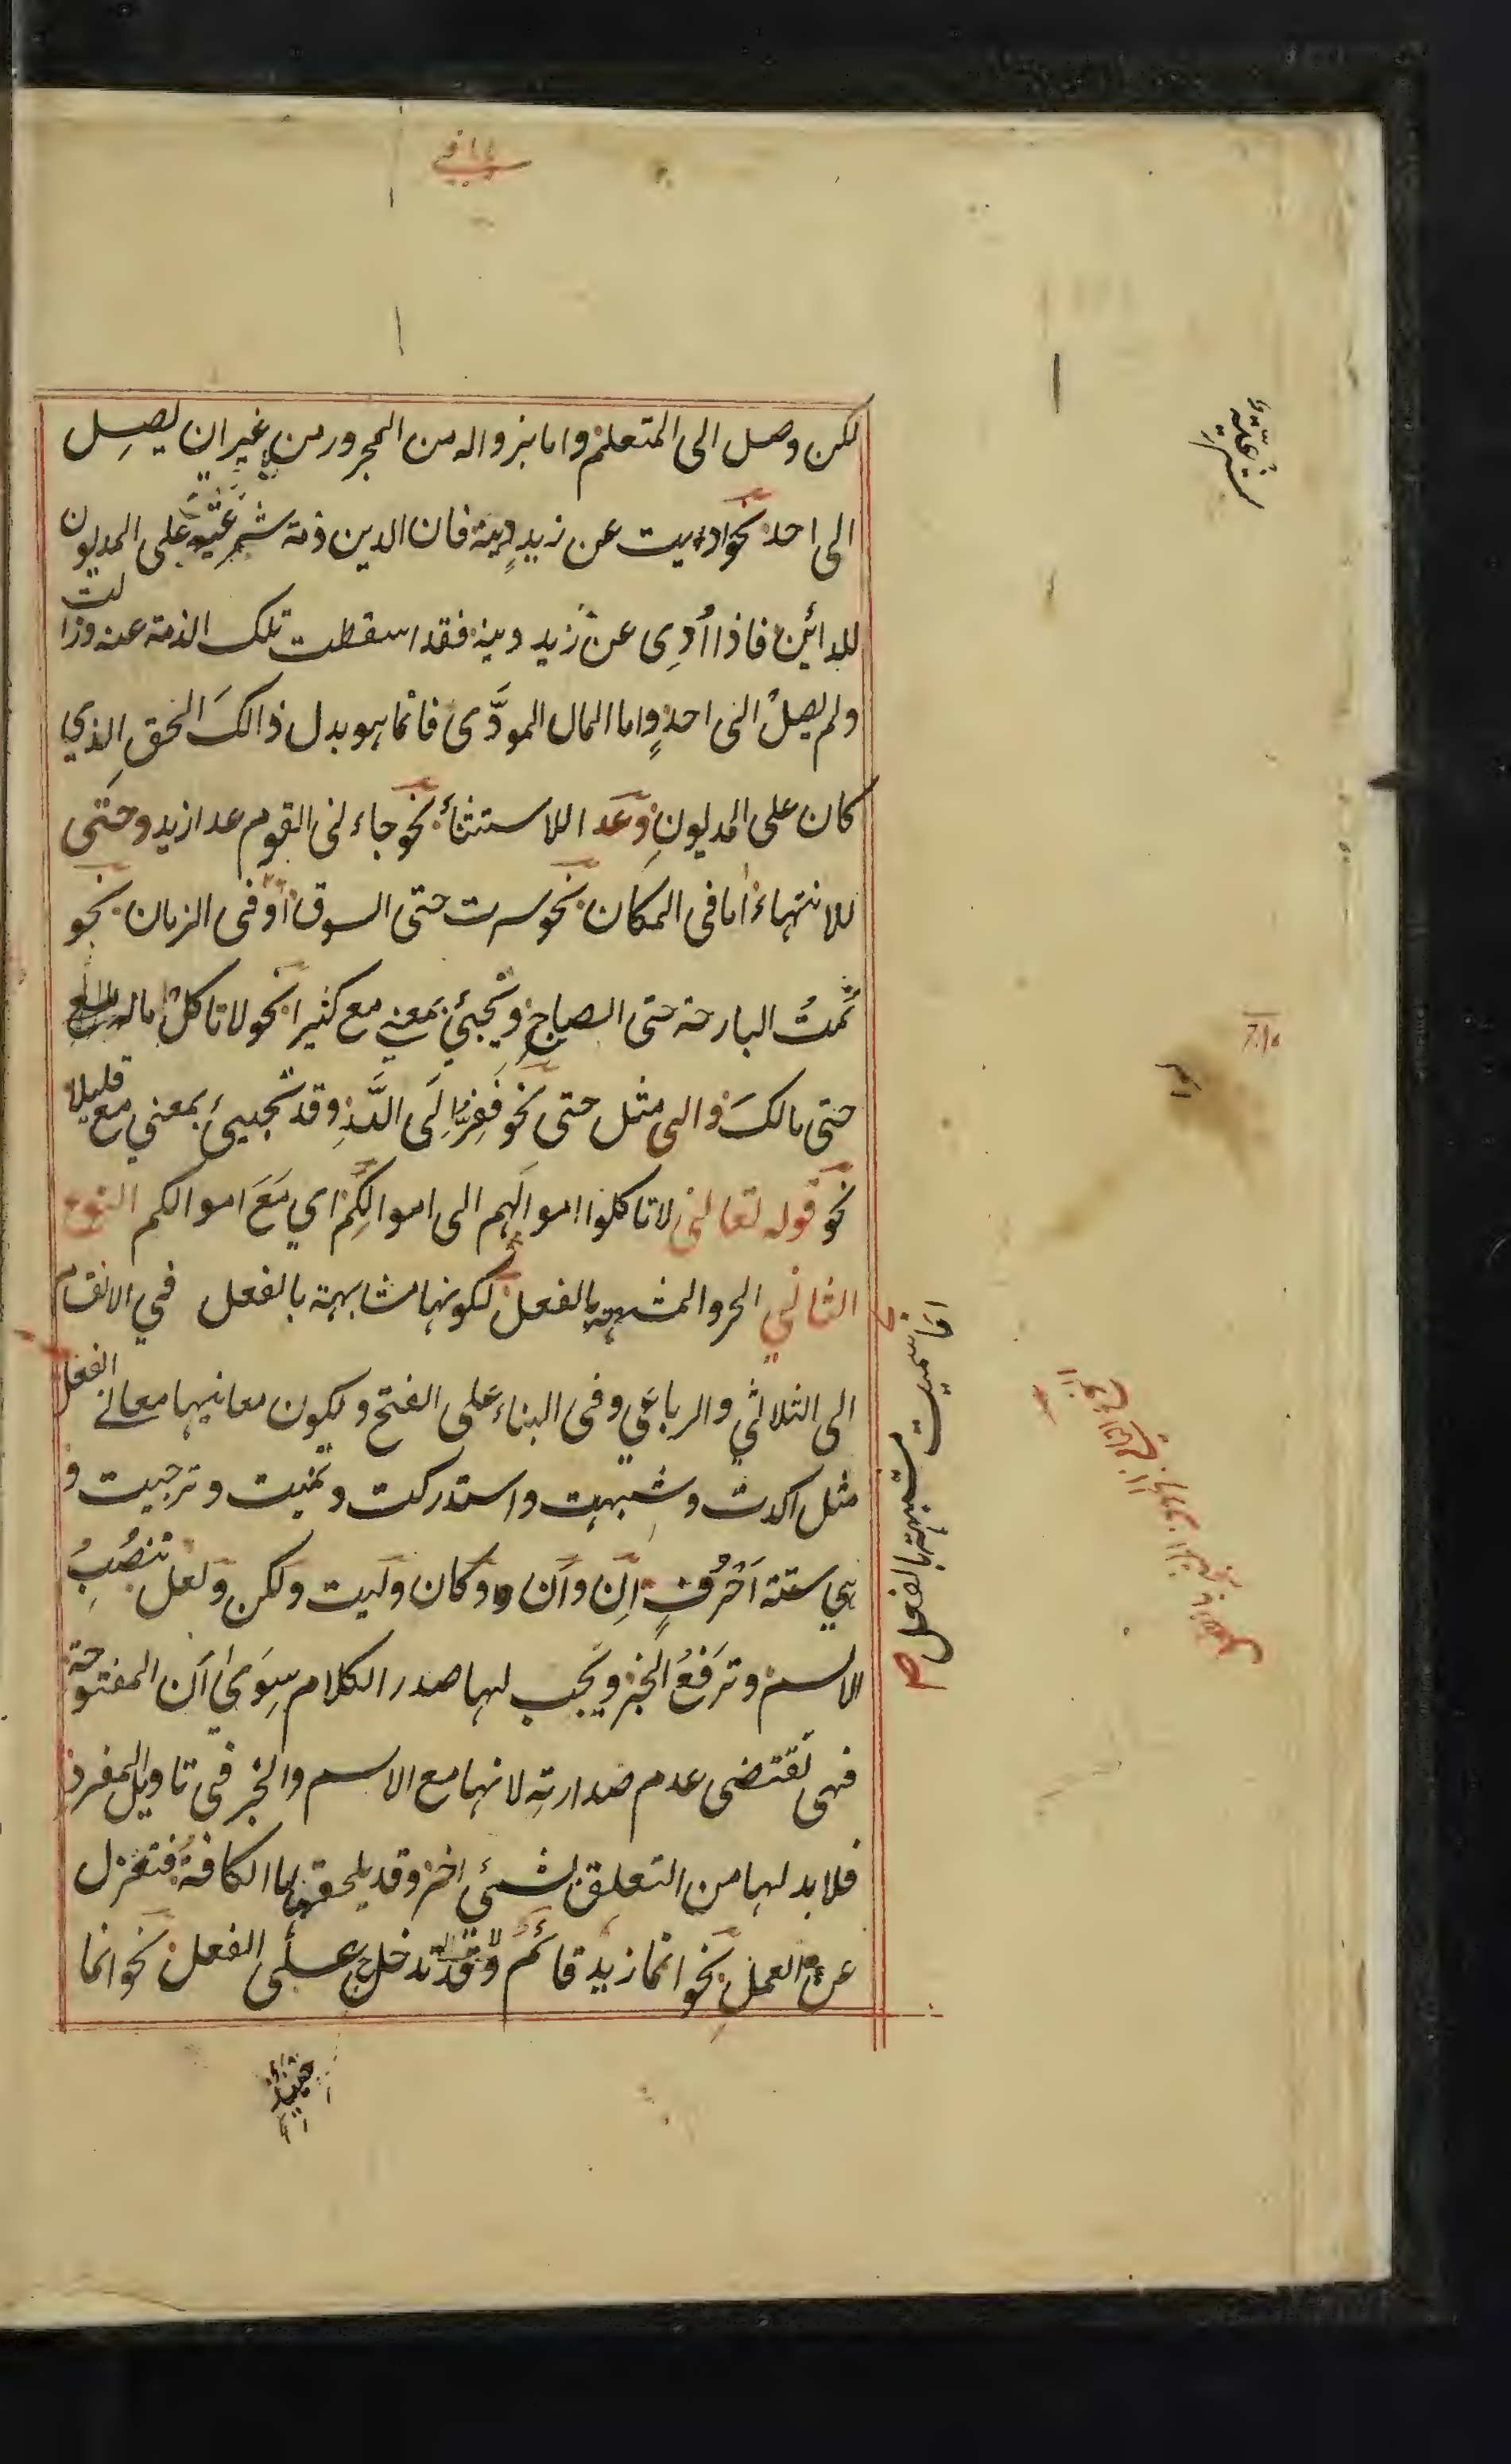 لكن وصل الى المتعلم واما بزواله من المجرور من غير ان يصل
الى احد نحو اديت عن زيد دينه فان الدين ذمة شرعية على المديون
للدائن فاذا أُدِى عن زيد دينه فقد اسقطت تلك الذمة عنه وزالت
ولم يصل الى احدٍ واما المال المودَّى فانما هو بدل ذالكَ الحق الذي
كان على المديونِ وعدا للاستثنأ نحو جاءنى القوم عدا زيد وحتى
للانتهاء اما فى المكان نحو سرت حتى السوق او فى الزمان نحو
نمتُ البارحة حتى الصباحِ وتجئ بمعني مع كثيرا نحو لا تاكل ماله
حتى مالكَ والى مثل حتى نحو ففِرُّا اِلَى اللّٰهِ وقد تجيئ بمعني مع قليلا
نحو قوله تعالى لا تاكلوا اموالَهم الى اموالِكُم اي مَعَ اموالكم النوع
الثاني الحروالمشبهة بالفعل لكونها مشابهة بالفعل في الانقسام
الى الثلاثي والرباعي وفى البناء عَلى الفتح ولكون معانيها معانے الفعل
مثل اكدت وشبهت واستدركت وتمنيت وترجيت و
هي ستة اَحْرُفٍ اِنّ واَنّ وكان وليت ولكن ولعل تنصُبُ
الاسم وترَفعُ الخبر ويجب لها صدر الكلام سِوَىٰ اَن المفتوحة
فهى تقتضى عدم صدارتهِ لانها مع الاسم والخبر فى تاويل المفرد
فلا بد لها من التعلق بشئي اخر وقد يلحقها ما الكافة فتعزل
عن العمل نحو انما زيد قائم وقد تدخل على الفعل نحو انما
انما سميت مشبهة بالفعل